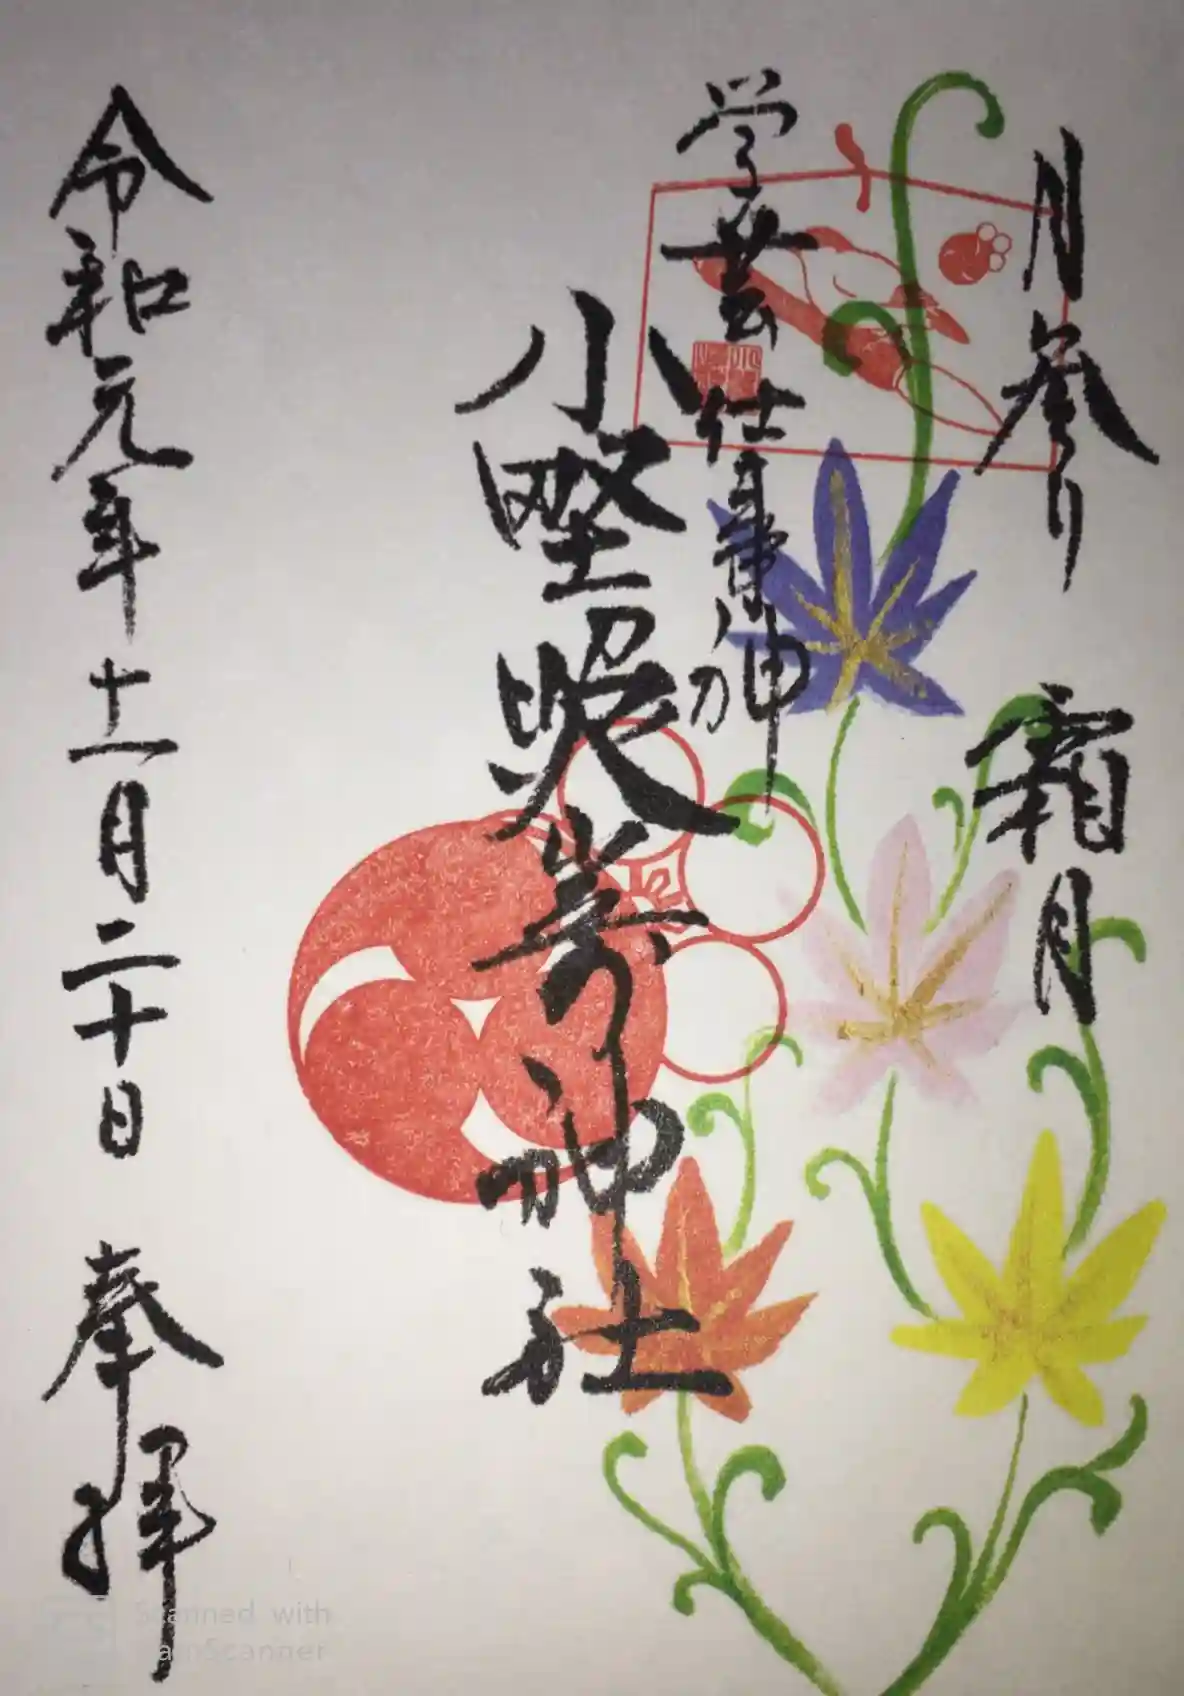 月参り 霜月
学芸 仕事神
小野照崎神社
令和元年十一月二十日 奉拝
Scanned with
CamScanner